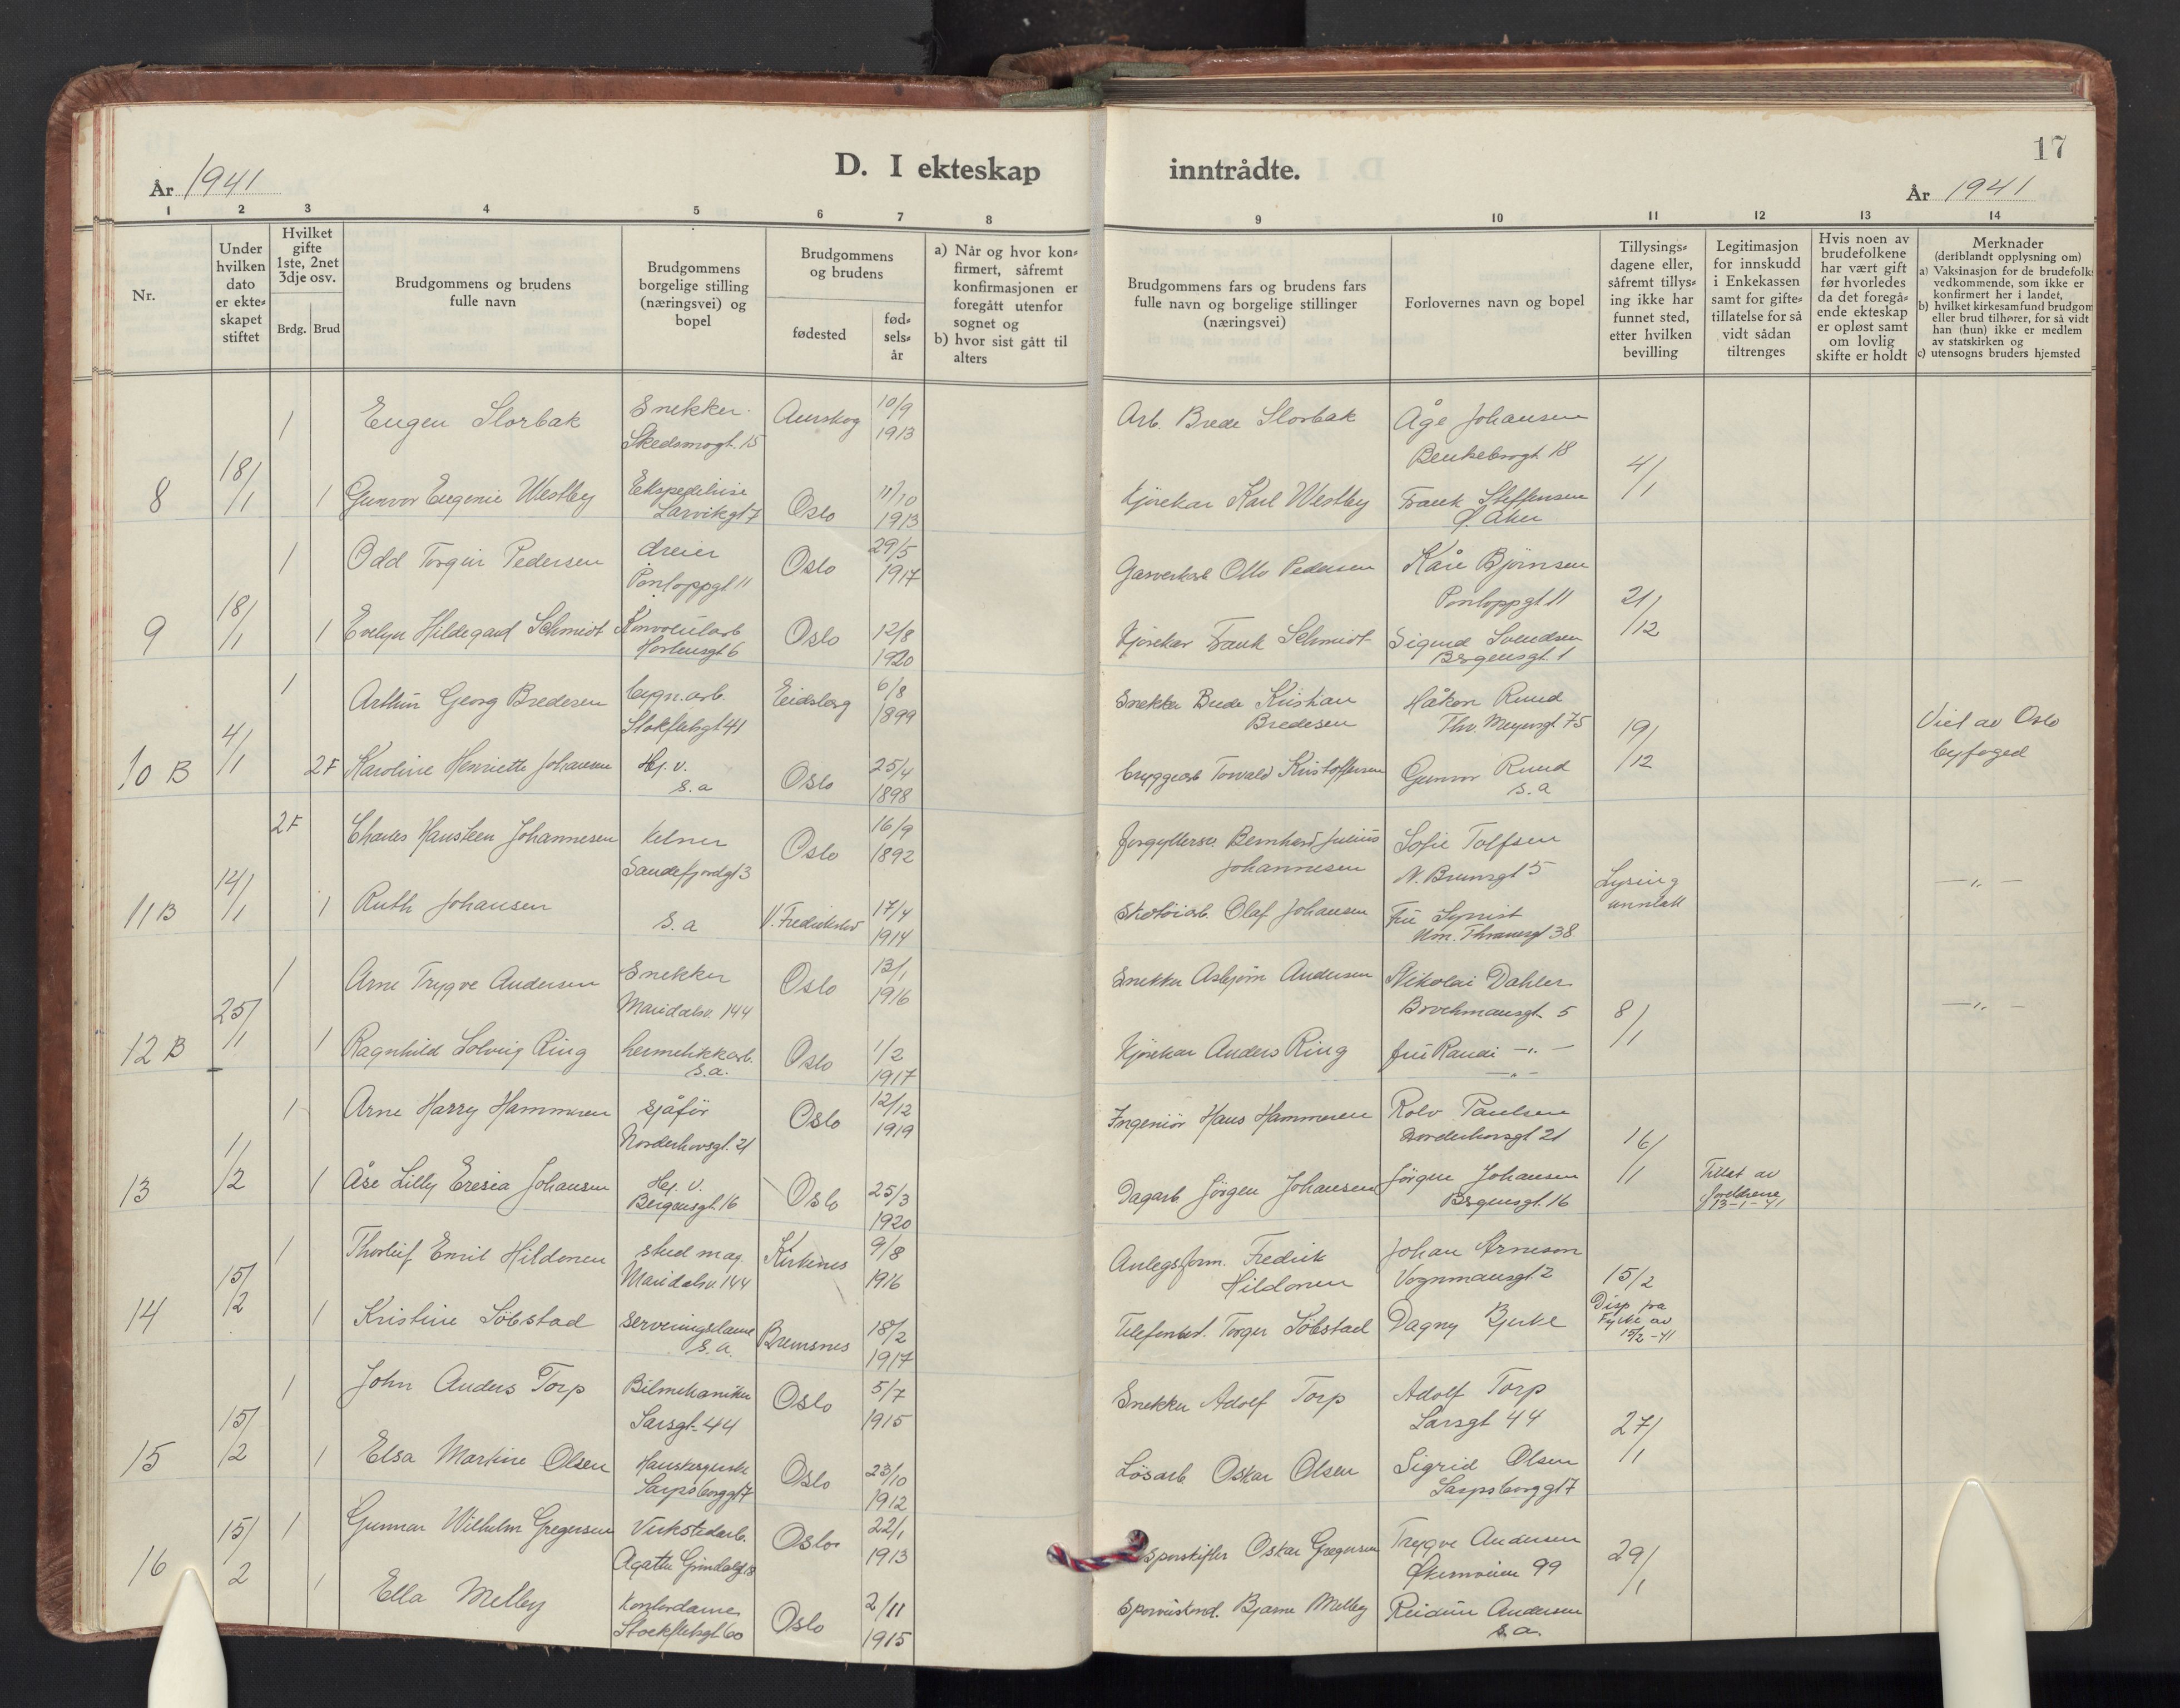 17
D. I ekteskap inntrådte.
År 1941
År 1941
1 2 3 4 5 6 7 8 9 10 11 12 13 14
Nr.
Under
hvilken
dato
er ekte-
skapet
stiftet
Hvilket
gifte
1ste, 2net
3dje osv.
Brdg. Brud
Brudgommens og brudens
fulle navn
Brudgommens
borgelige stilling
(næringsvei) og
bopel
Brudgommens
og brudens
fødested
fød-
sels-
år
a) Når og hvor kon-
firmert, såfremt
konfirmasjonen er
foregått utenfor
sognet og
b) hvor sist gått til
alters
Brudgommens fars og brudens fars
fulle navn og borgelige stillinger
(næringsvei)
Forlovernes navn og bopel
Tillysings-
dagene eller,
såfremt tillys-
ing ikke har
funnet sted,
etter hvilken
bevilling
Legitimasjon
for innskudd
i Enkekassen
samt for gifte-
tillatelse for så
vidt sådan
tiltrenges
Hvis noen av
brudefolkene
har vært gift
før hvorledes
da det foregå-
ende ekteskap
er opløst samt
om lovlig
skifte er holdt
Merknader
(deriblandt opplysning om)
a) Vaksinasjon for de brudefolk
vedkommende, som ikke er
konfirmert her i landet,
b) hvilket kirkesamfund brudgom
eller brud tilhører, for så vidt
han (hun) ikke er medlem
av statskirken og
c) utensogns bruders hjemsted
1 Eugen Storbak Snekker Aurskog 10/9 Arb. Brede Storbak Åge Johansen
Skedsmogt. 15 1913 18
8 18/1 1 Gunvor Eugenie Westby Ekspeditrise Oslo 11/10 Kjørekar Karl Westby Frank Steffensen 4/1
Larvikgt 7 1913 Ø. Aker
1 Odd Torgeir Pedersen dreier Oslo 29/5 Otto Pedersen Kåre Bjørnsen
Pontoppgt. 11 1917 Pontoppgt 11 21/12
9 18/1 1 Evelyn Hildegard Schmidt Konvoluttarb Oslo 12/8 Kjørekar Frank Schmidt Sigurd Svendsen
Hortensgt 6 1920 Bergensgt. 1
1 Arthur Georg Bredesen bygn.arb. Eidsberg 6/8 Snekker Brede Kristian Håkon Ruud
Stokfletsgt 41 1899 Bredesen Thv. Meyersgt. 75 19/12 Viet av Oslo
10 B 4/1 2F Karoline Henriette Johansen Hj. v. Oslo 25/4 bryggearb Torvald Kristoffersen Gunvor Ruud byfoged
s.a 1898 s.a
2F Charles Hansteen Johannesen kelner Oslo 16/9 Bernhard Julius Sofie Tolfsen
Sandefjordgt 3 1892 Johannesen N. Brunsgt 5 Lysing
11 B 14/1 1 Ruth Johansen s.a V. Fredrikstad 17/4 Skotøiarb. Olaf Johansen Fru unnlatt — „ —
1914 Thranesgt 38
1 Arne Trygve Andersen Snekker Oslo 13/1 Snekker Asbjørn Andersen Nikolai Dahler
Maridalsv. 144 1916 Brochmansgt. 5 8/1 — „ —
12 B 25/1 1 Ragnhild Solveig Ring hermetikkarb. Oslo 1/2 Kjørekar Anders Ring fru Randi — „ —
s.a. 1917 — „ —
1 Arne Harry Hammeren sjåfør Oslo 12/12 Ingeniør Hans Hammeren Rolv Paulsen
Norderhovsgt. 21 1919 Norderhovsgt 21 16/1
13 1/2 1 Åse Lilly Eresia Johansen Hj. v. Oslo 25/3 Dagarb Jörgen Johansen Jörgen Johansen Tillat av
Bergensgt. 16 1920 Bergensgt. 16 foreldrene
13-1-41
1 Thorleif Emil Hildonen stud mag. Kirkenes 9/8 Anlegsform. Fredrik Johan Arneson
Maridalsv. 144 1916 Hildonen Vognmansgt 2 15/2
14 15/2 1 Kristine Söbstad serveringsdame Bremsnes 18/2 Torger Söbstad Dagny Bjerke Disp fra
s.a. 1917 Fylke av
15/2-41
1 John Anders Torp Bilmekaniker Oslo 5/7 Snekker Adolf Torp Adolf Torp
Sarsgt. 44 1915 Sarsgt 44 27/1
15 15/2 1 Elsa Martine Olsen Oslo 23/10 Løsarb Oskar Olsen Sigrid Olsen
Sarpsborggt 7 1912 Sarpsborggt 7
1 Gunnar Wilhelm Gregersen Verkstedarb. Oslo 22/1 Sporskifter Oskar Gregersen Trygve Andersen
Agathe Grøndalsgt 18 1913 Økernveien 99 29/1
16 15/2 1 Ella Melby Kontordame Oslo 2/11 Bjarne Melby Reidun Andersen
Stockfletsgt. 60 1915 s.a.